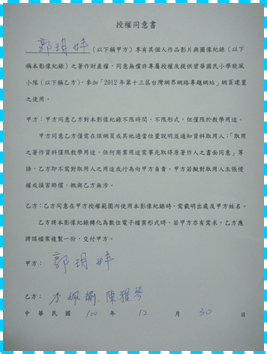 授權同意書
(以下稱甲方)享有其個人作品影片與圖像紀錄(以下
稱本影像紀錄)之著作財產權,同意無償非專屬授權及提供
小隊(以下稱乙方),參加「2012年第十三屆台灣網界網路專題網站」網頁建置
之使用。
甲方:甲方同意乙方對本影像紀錄不限時間、不限形式、但僅限於教學用途、
甲方同意乙方僅需在該網頁或其他適當位置說明並通知資料取用人:「取用
之著作資料僅限教學用途,任何商業用途需事先取得原著作人之書面同意」等
語,乙方即不需對取用人之用途或行為向甲方負責。甲方若據對取用人主張侵
權或損害賠償,概與乙方無涉。
乙方:乙方同意在甲方授權範圍內使用本影像紀錄時,需載明出處及甲方姓名。
乙方將本影像紀錄轉化為數位電子檔案形式時,若甲方亦有需求,乙方應
將該檔案複製一份,交付甲方。
甲方:
乙方:
中華民國 100 年 12 月 30 日